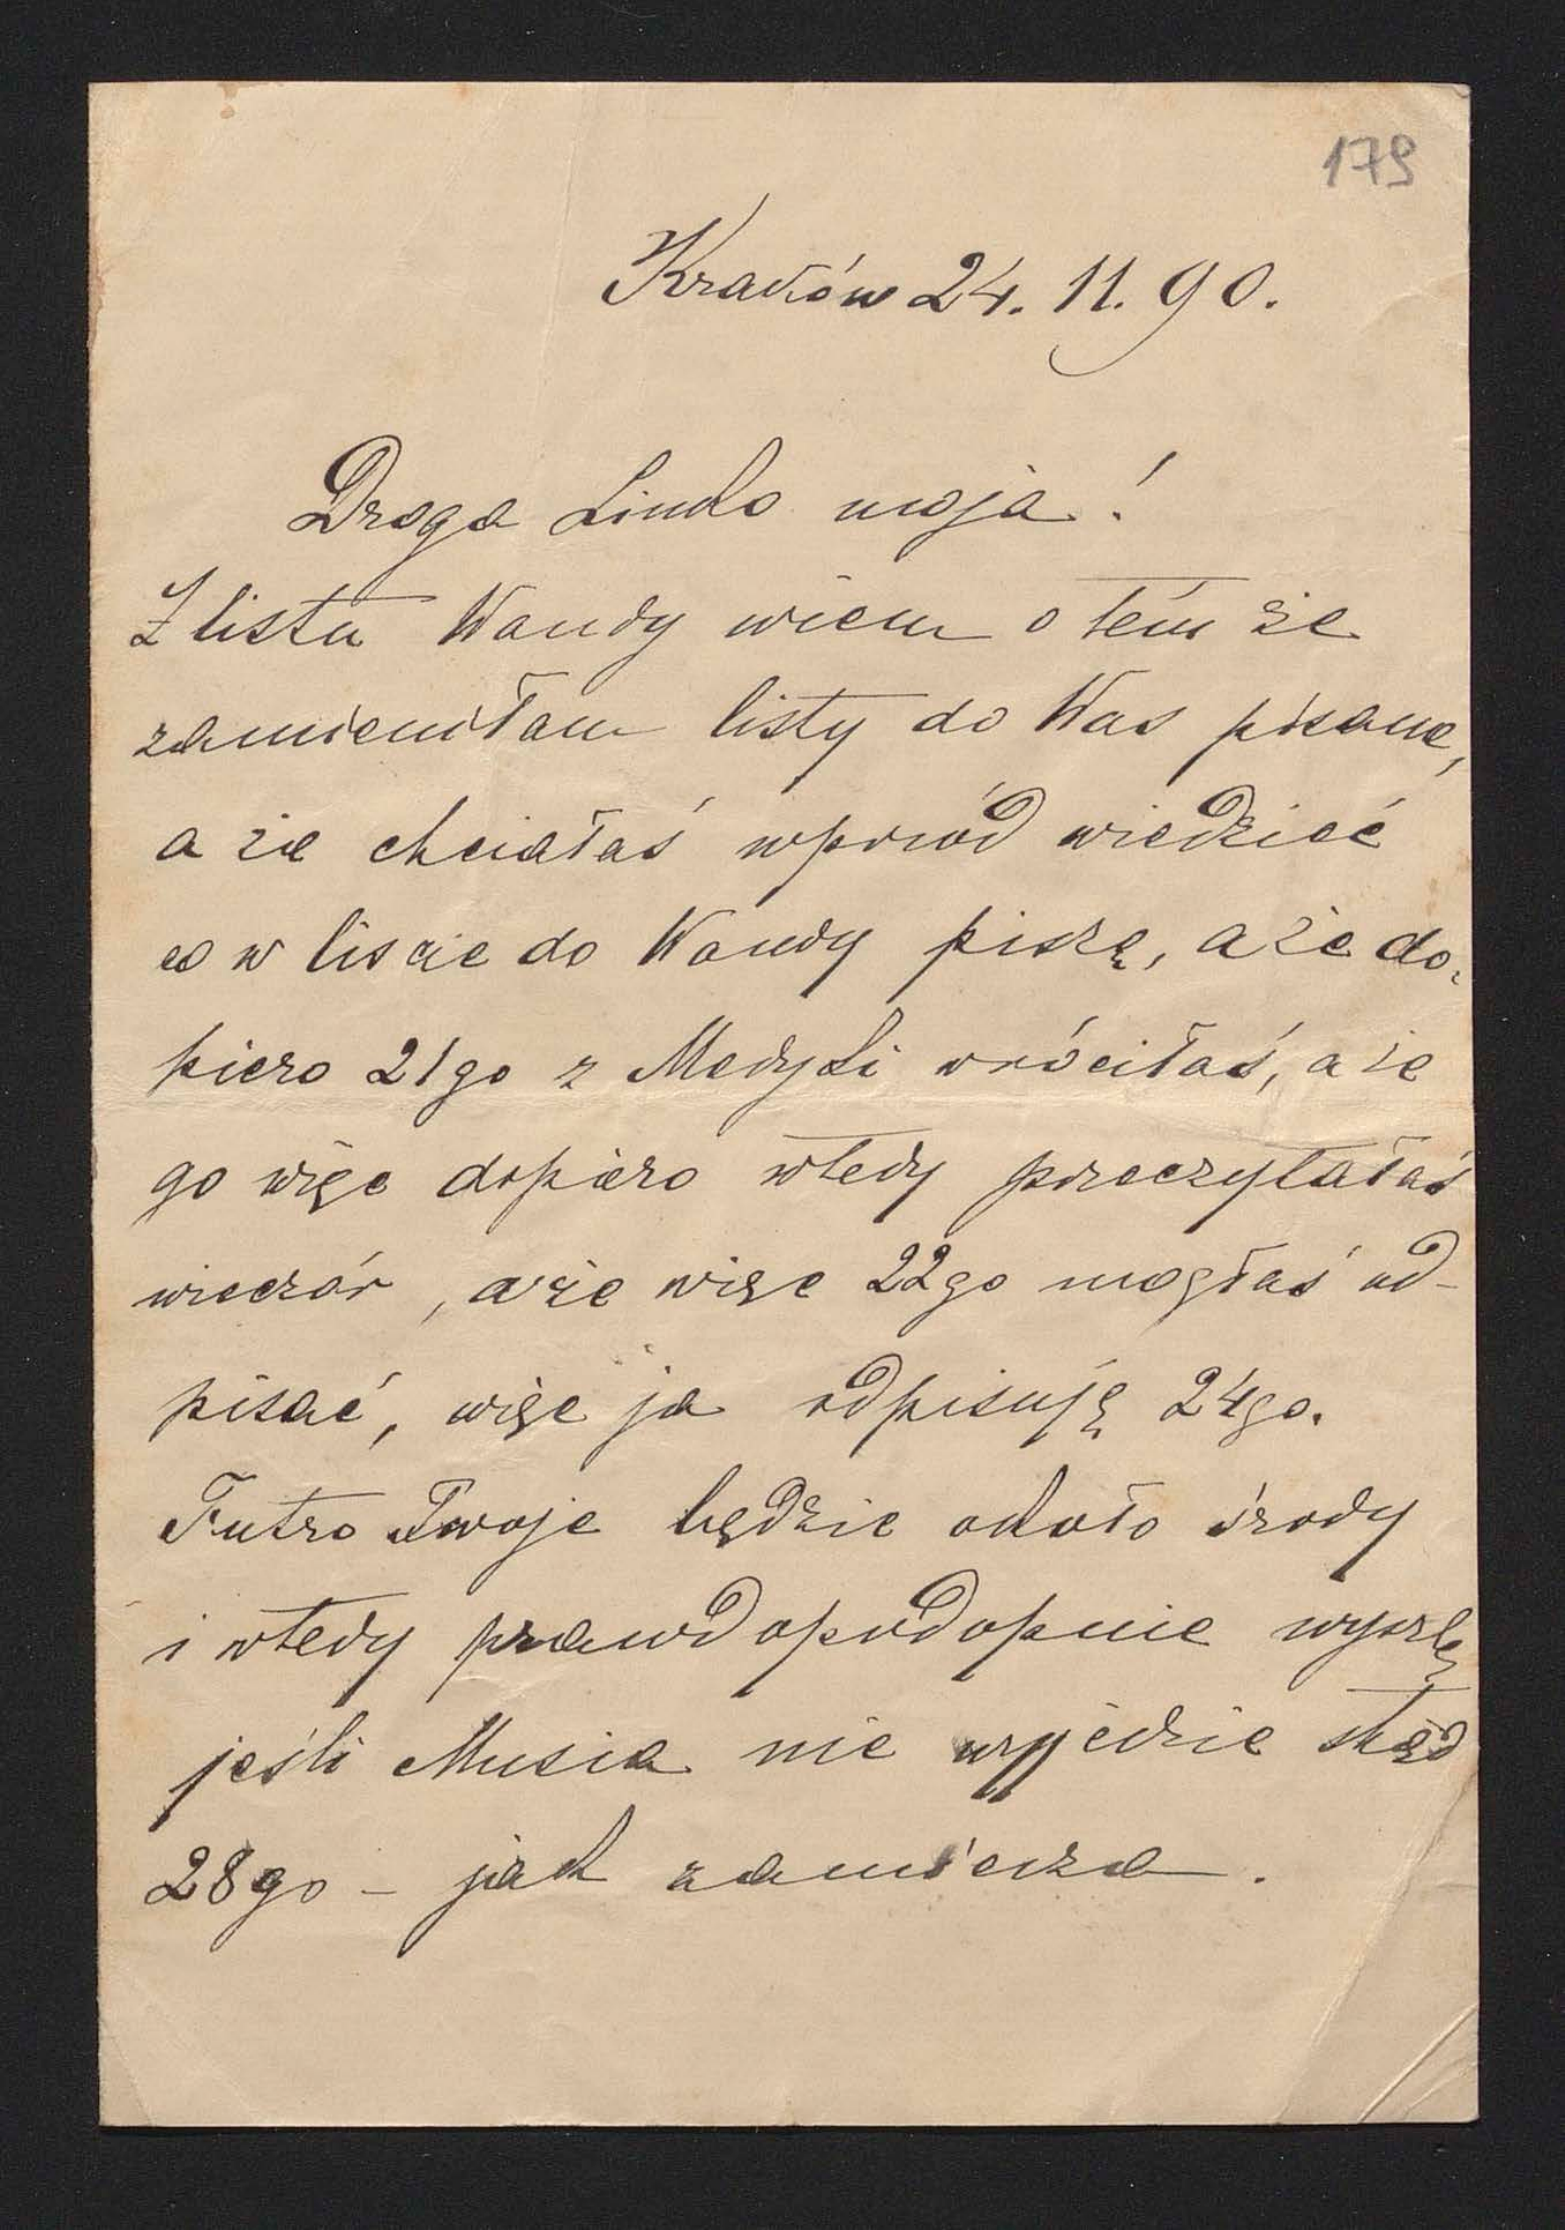 179
Kraków 24. 11. 90.
Droga Linko moja!
Z listu Wandy wiem o tém że
zamieniłam listy do Was pisane,
a że chciałaś wprzód wiedzieć
co w liscie do Wandy piszę, a że do-
piero 21go z Medyki wróciłaś, a że
go więc dopiero wtedy przeczytałaś
wieczór, a że więc 22go mogłaś od-
pisać, więc ja odpisuję 24go.
Futro Twoje będzie około środy
i wtedy prawdopodopnie wyszlę
jeśli Musia nie wyjedzie ztąd
28go - jak zamierza.